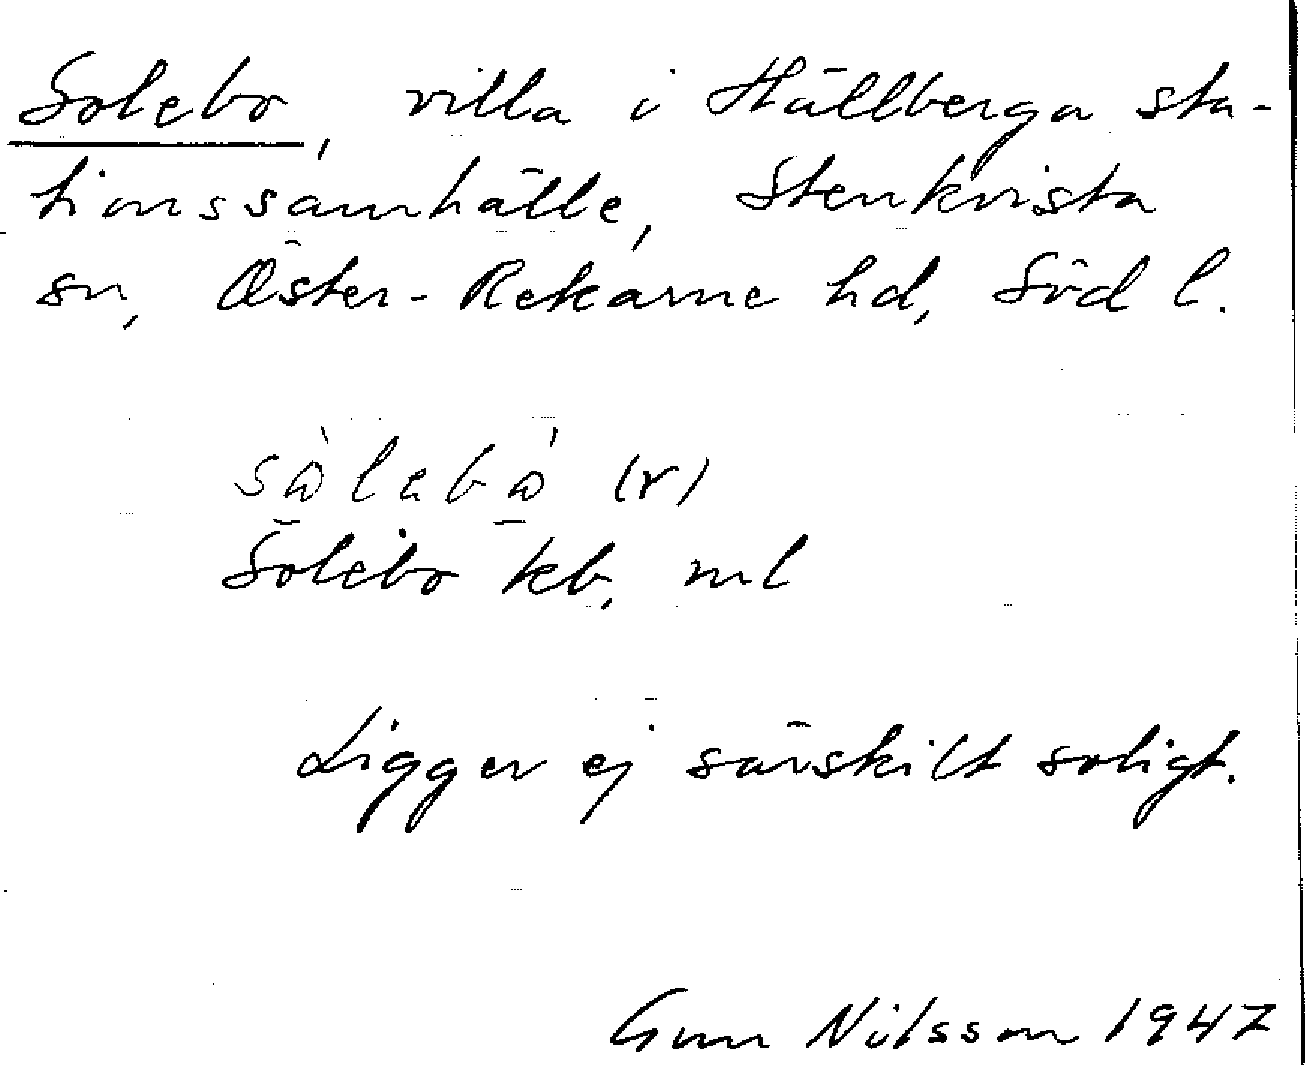 Solebo, villa i Hällberga sta-
tionssamhälle, Stenkvista
sn, Öster-Rekarne hd, Söd l.
sàlebá (r)
Solebo kb, ml
Ligger ej särskilt soligt.
Gun Nilsson 1947